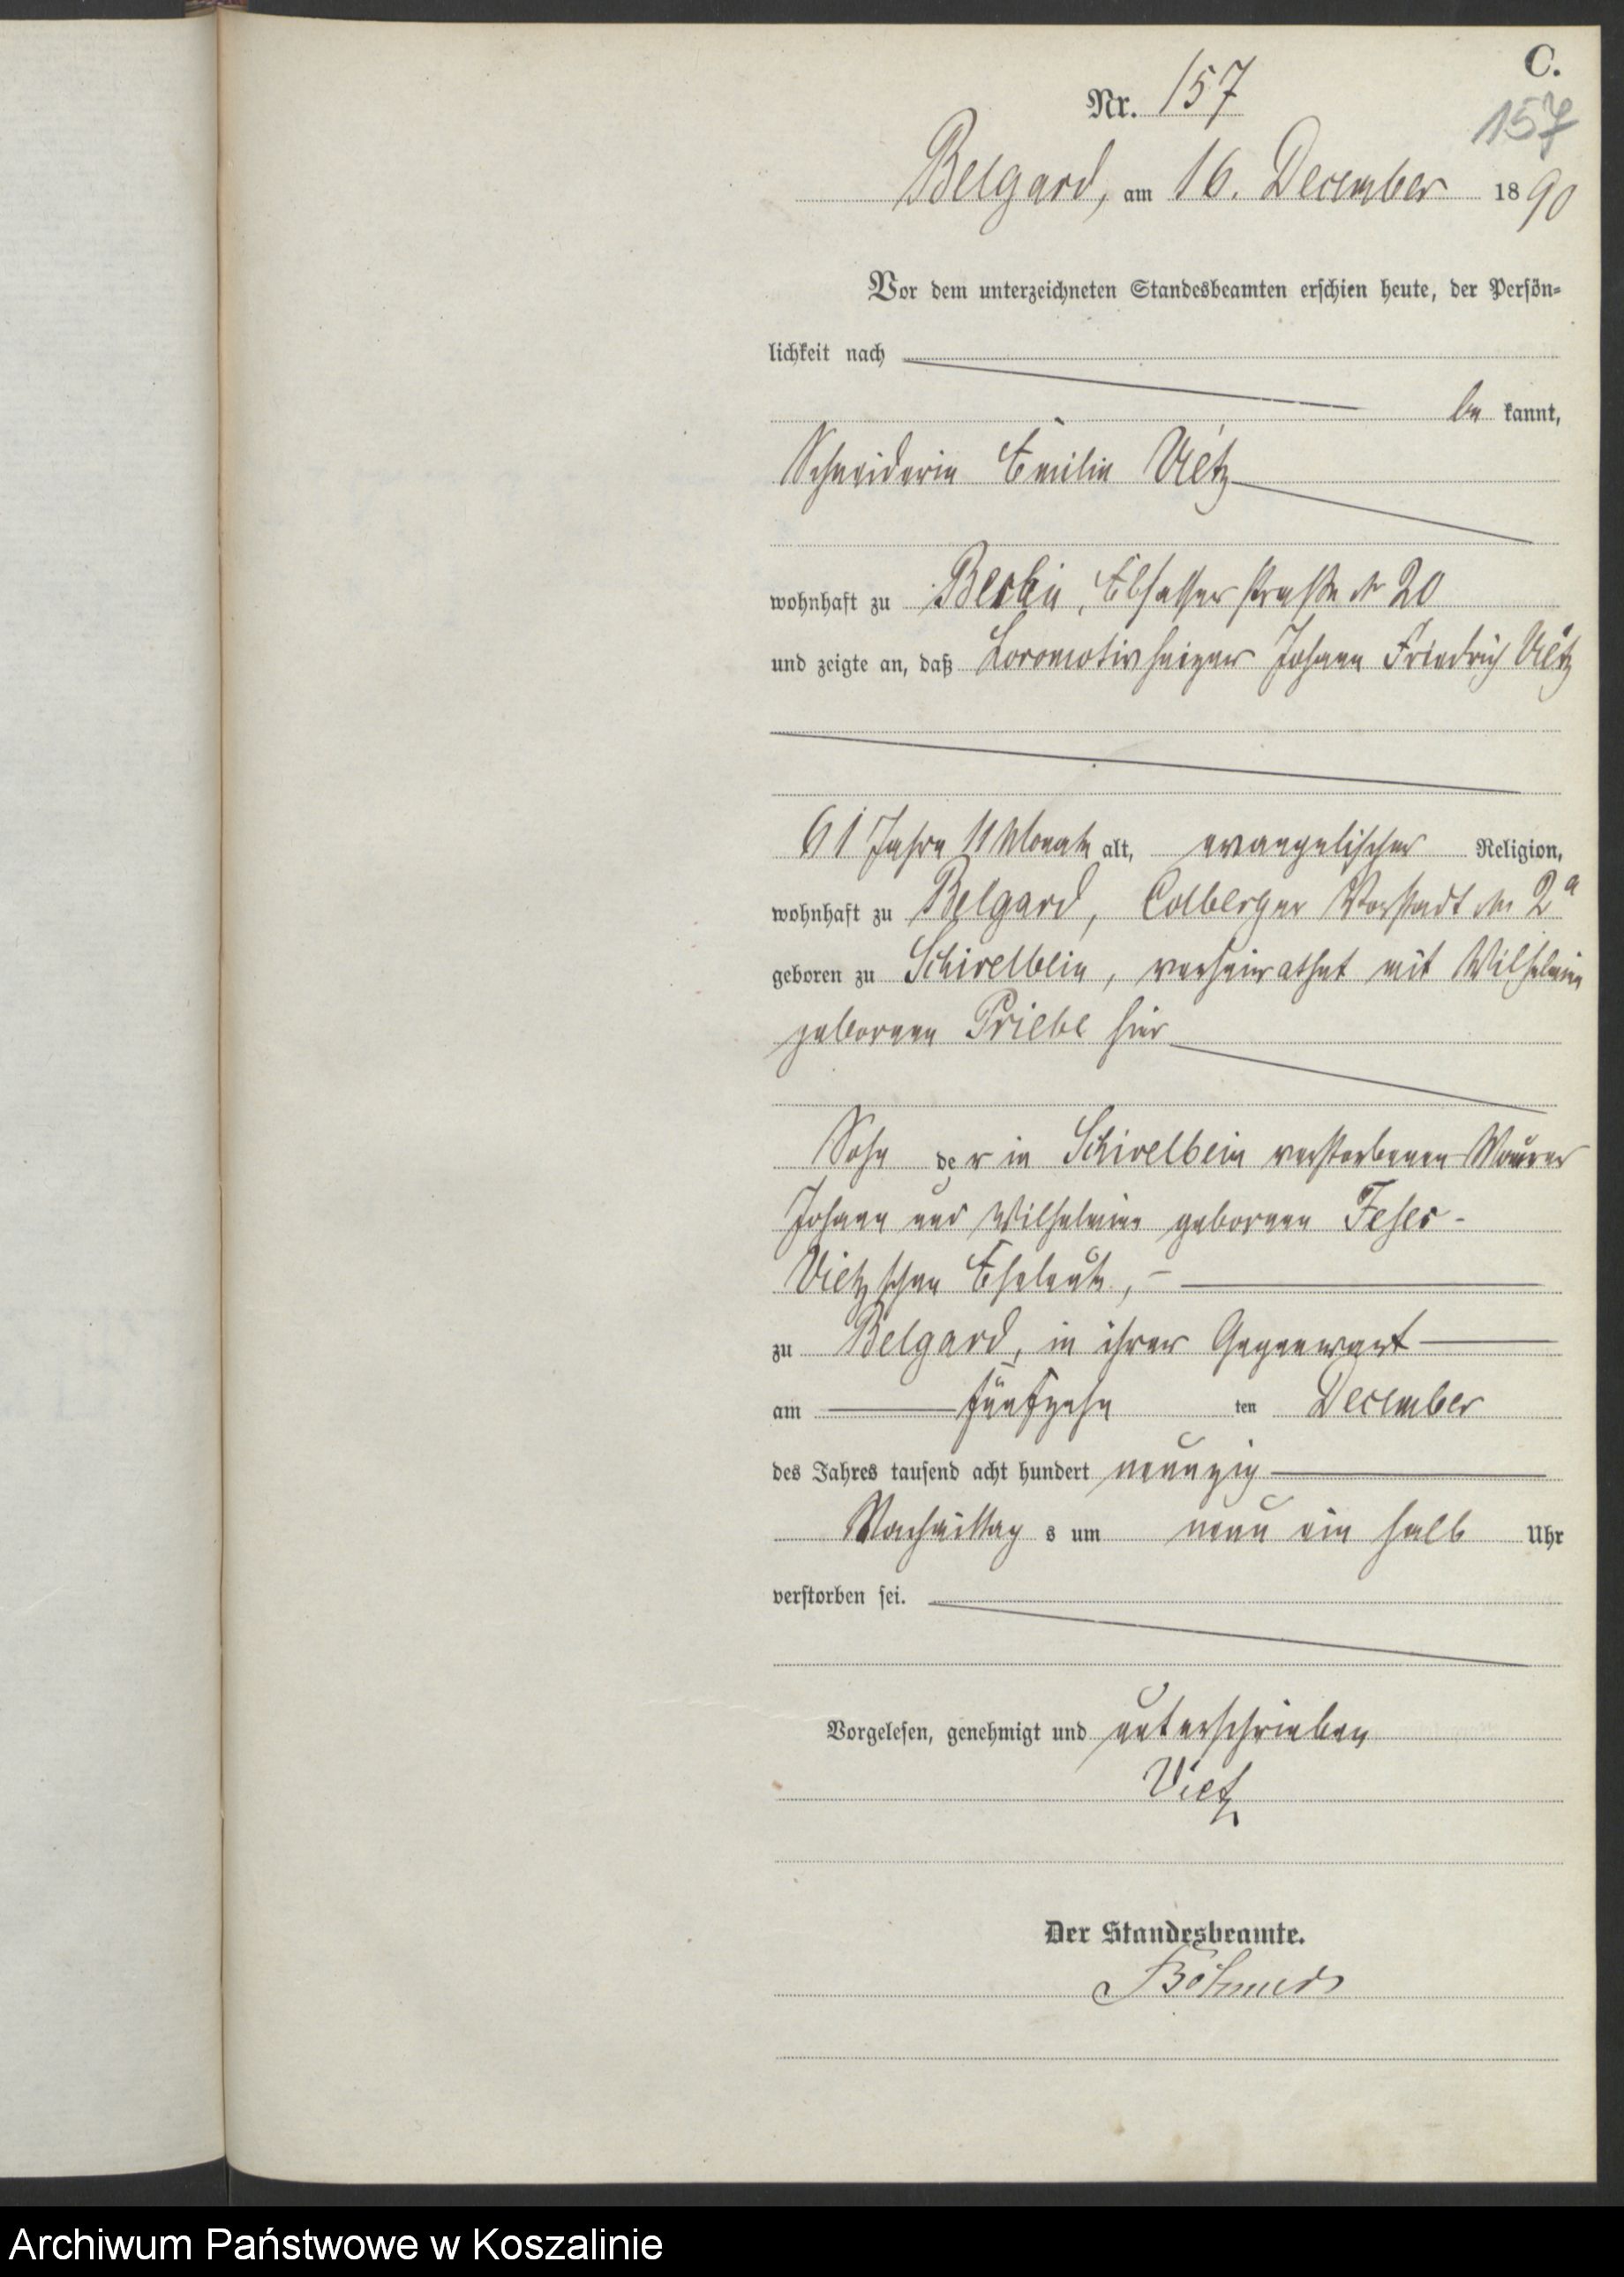 C.
Nr. 157
157
Belgard, am 16. December 1890
Vor dem unterzeichneten Standesbeamten erschien heute, der Persön-
lichkeit nach
be kannt,
Schneiderin Emilie Vietz
wohnhaft zu Berlin, Elsasser straße № 20
und zeigte an, daß Locomotivheizer Johann Friedrich Vietz
61 Jahre 11 Monate alt, evangelischer Religion,
wohnhaft zu Belgard, Colberger Vorstadt № 2a
geboren zu Schivelbein, verheirathet mit Wilhelmine
geborenen Priebe hier
Sohn der in Schivelbein verstorbenen Maurer
Johann und Wilhelmine geborenen Feher-
Vietzschen Eheleute,
zu Belgard, in ihrer Gegenwart
am fünfzehn ten December
des Jahres tausend acht hundert neunzig
Nachmittag s um neun ein halb Uhr
verstorben sei.
Vorgelesen, genehmigt und unterschrieben
Vietz
Der Standesbeamte.